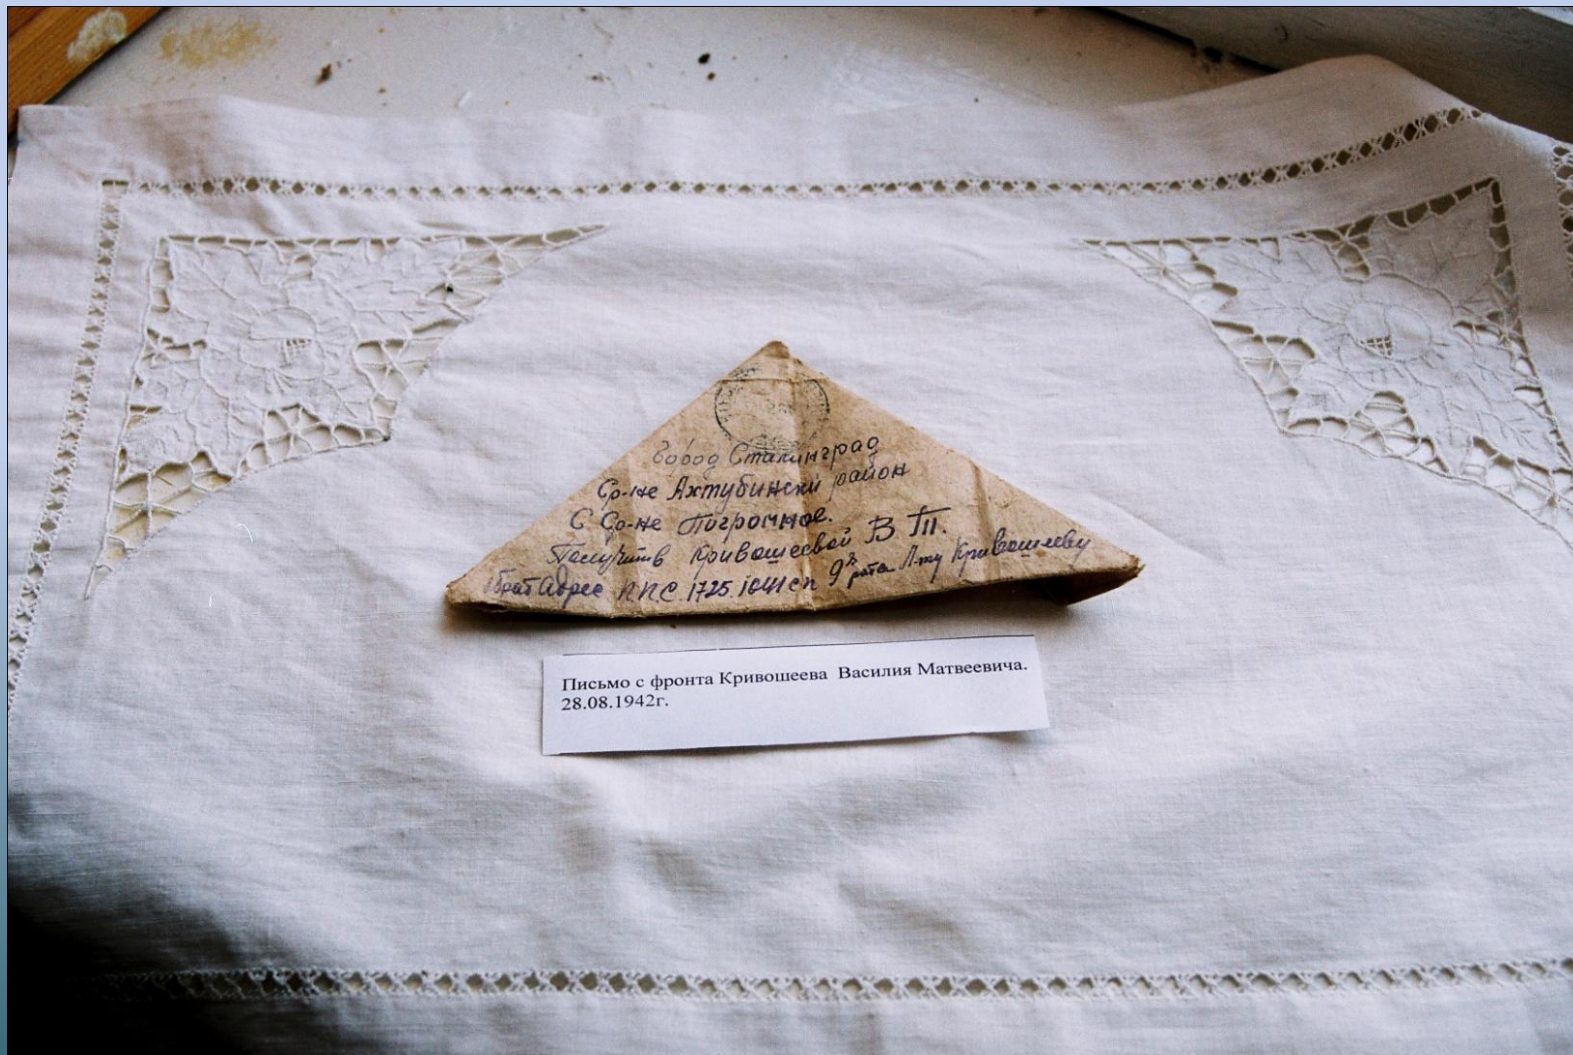 Город Сталинград
Ср-не Ахтубински район
С Ср-не Погромное.
Получить Кривошеевой В Т.
обрат Адрес П.П.С. 1725. 1041 сп 9я рота Л-ту Кривошееву
Письмо с фронта Кривошеева Василия Матвеевича.
28.08.1942г.